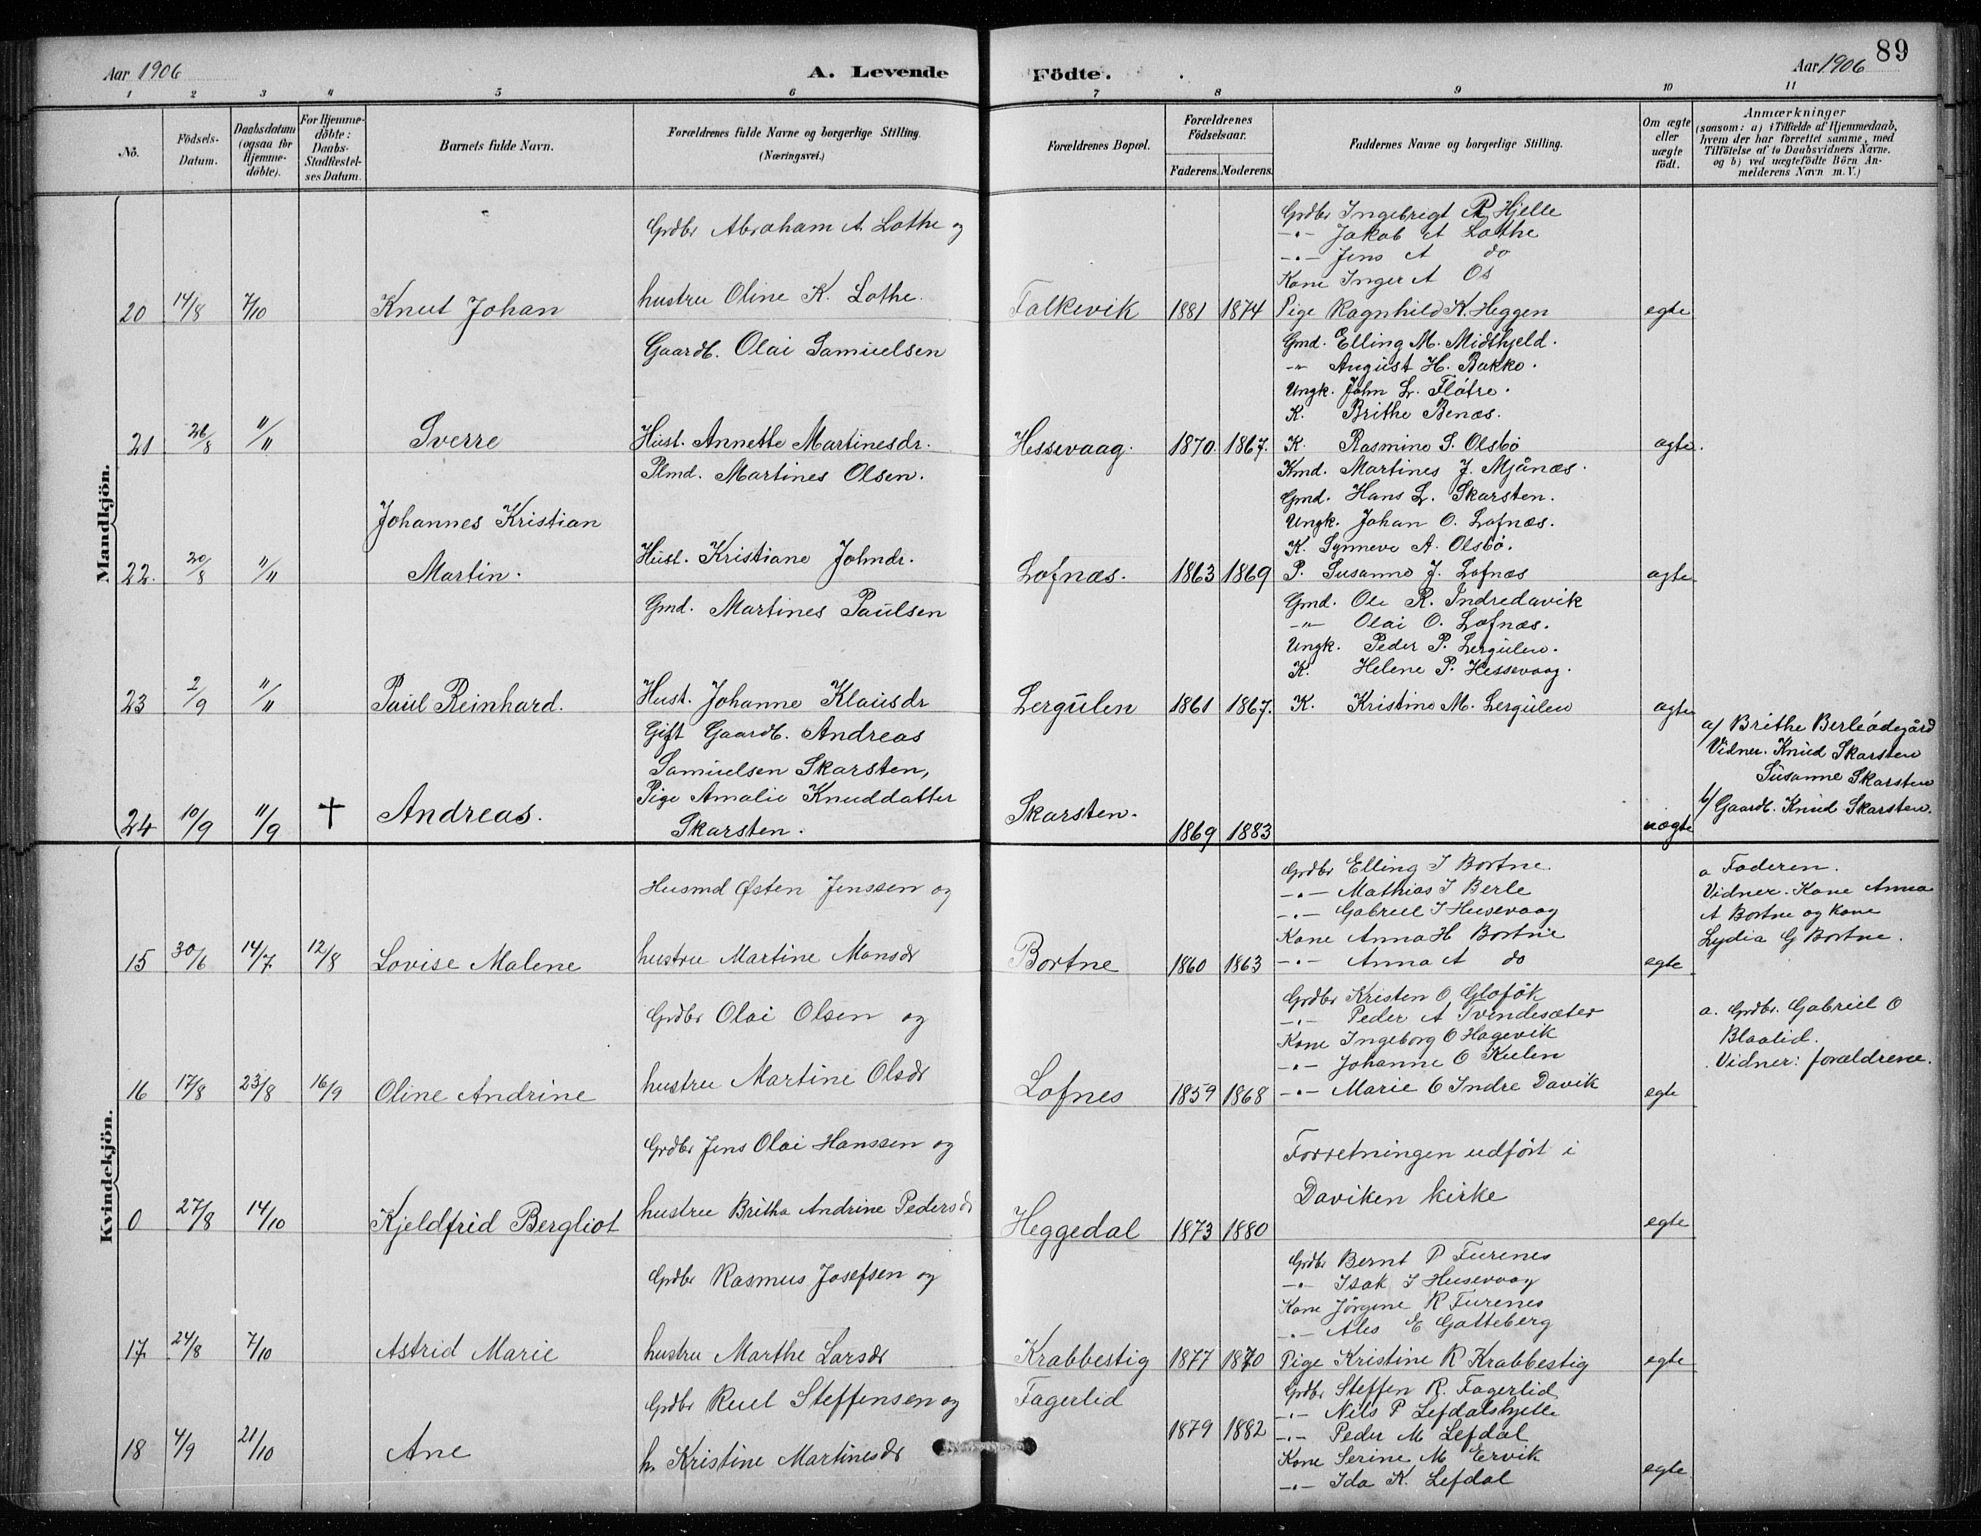 89
Aar 1906
A. Levende
Födte.
Aar 1906
1 2 3 4 5 6 7 8 9 10 11
No.
Födsels-Datum.
Daabsdatum (ogsaa for Hjemme-döbte).
For Hjemme-döbte: Daabs-Stadfæstel-ses Datum.
Barnets fulde Navn.
Forældrenes fulde Navne og borgerlige Stilling.
(Næringsvei.)
Forældrenes Bopæl.
Forældrenes Födselsaar.
Faderens. Moderens.
Faddernes Navne og borgerlige Stilling.
Om ægte eller uægte födt.
Anmærkninger
(saasom: a) i Tilfælde af Hjemmedaab,
hvem der har forrettet samme, med
Tilföielse af to Daabsvidners Navne.
og b) ved uægtefödte Börn An-
melderens Navn m. V.)
Mandkjön.
Grdbr Abraham A. Lothe og
Grdbr Ingebrigt P Hjelle
-"- Jakob A Lothe
-"- Jens A do
Kone Inger A Os
20 14/8 7/10 Knut Johan hustru Oline K. Lothe. Falkevik 1881 1874 Pige Ragnhild K. Heggen egte
Gaardb. Olai Samuelsen
Gmd. Elling M. Midthjeld.
-"- August H. Bakke.
Ungk. John L. Flötre.
K. Brithe Benæs.
21 26/8 "/" Sverre Hust. Annette Martinesdr. Hessevaag. 1870. 1867. K. Rasmine S. Olsbö ægte.
Plmd. Martines Olsen.
Kmd. Martines J. Mjånæs.
Gmd. Hans L. Skarsten.
Johannes Kristian
Ungk. Johan O. Lofnæs.
K. Synneve A. Olsbö.
22. 20/8 "/" Martin. Hust. Kristiane Johndr. Lofnæs. 1863 1869 P. Susanne J. Lofnæs ægte
Gmd. Martines Paulsen
Gmd. Ole R. Indredavik
-"- Olai O. Lofnæs.
Ungk. Peder P. Lergulen.
K. Helene P. Hessevaag.
23 2/9 "/" Paul Reinhard. Hust. Johanne Klausdr Lergulen 1861 1867. K. Kristine M. Lergulen ægte
Gift Gaardb. Andreas
Samuelsen Skarsten,
Pige Amalie Knuddatter
24 10/9 11/9 † Andreas. Skarsten. Skarsten. 1869 1883 uægte
a/ Brithe Berleödegård
Vidner. Knud Skarsten
Susanne Skarsten
b/ Gaardb. Knud Skarsten.
Kvindekjön.
Husmd Østen Jenssen og
Grdbr Elling I Bortne.
-"- Mathias I Berle
-"- Gabriel I Husevaag
Kone Anna H Bortne
15 30/6 14/7 12/8 Lovise Malene hustru Martine Monsdr Bortne 1860 1863 -"- Anna A do egte
a Faderen.
Vidner. Kone Anna
A Bortne og kone
Lydia G Bortne.
Grdbr Olai Olsen og
Grdbr Kristen O Gloføk
-"- Peder A Tvindesæter
Kone Ingeborg O Hagevik
-"- Johanne O Kulen
16 17/8 23/8 16/9 Oline Andrine hustru Martine Olsdr Lofnes 1859 1868 -"- Marie O Indre Davik egte
a. Grdbr. Gabriel O
Blaalid.
Vidner: forældrene.
Grdbr Jens Olai Hanssen og
Forretningen udført i
Daviken kirke
0 27/8 14/10 Kjeldfrid Bergliot hustru Britha Andrine Pedersdr Heggedal 1873 1880 egte
Grdbr Rasmus Josefsen og
Grdbr Bernt P Furenes
-"- Isak I Husevaag
Kone Jörgine R Furenes
-"- Ales E Gotteberg
17 24/8 7/10 Astrid Marie hustru Marthe Larsdr Krabbestig 1877 1870 Pige Kristine R Krabbestig egte
Grdbr Ruul Steffensen og
Fagerlid
Grdbr Steffen R. Fagerlid
-"- Nils P Lefdalshjelle
1879 1882 -"- Peder M Lefdal
18 4/9 21/10 Ane h. Kristine Martinesdr Kone Serine M Ervik
-"- Ida K. Lefdal egte